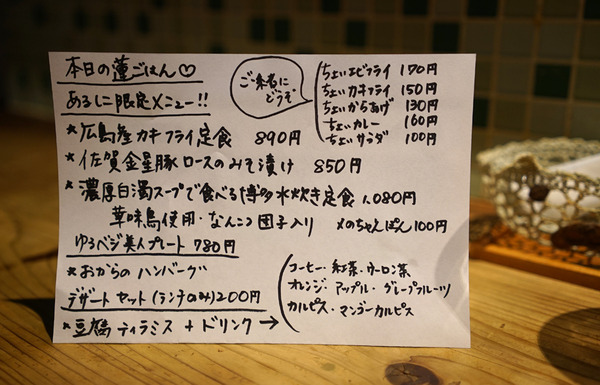 本日の蓮ごはん♡
あるしに限定メニュー!!
★広島産カキフライ定食 890円
★佐賀金星豚ロースのみそ漬け 850円
★濃厚白濁スープで食べる博多水炊き定食 1,080円
華味鳥使用・なんこつ団子入り 〆のちゃんぽん100円
ゆるベジ美人プレート 780円
★おからのハンバーグ
デザートセット(ランチのみ)200円
★豆腐ティラミス + ドリンク →
ご一緒に
どうぞ
ちょいエビフライ 170円
ちょいカキフライ 150円
ちょいからあげ 130円
ちょいカレー 160円
ちょいサラダ 100円
コーヒー・紅茶・ウーロン茶
オレンジ・アップル・グレープフルーツ
カルピス・マンゴーカルピス